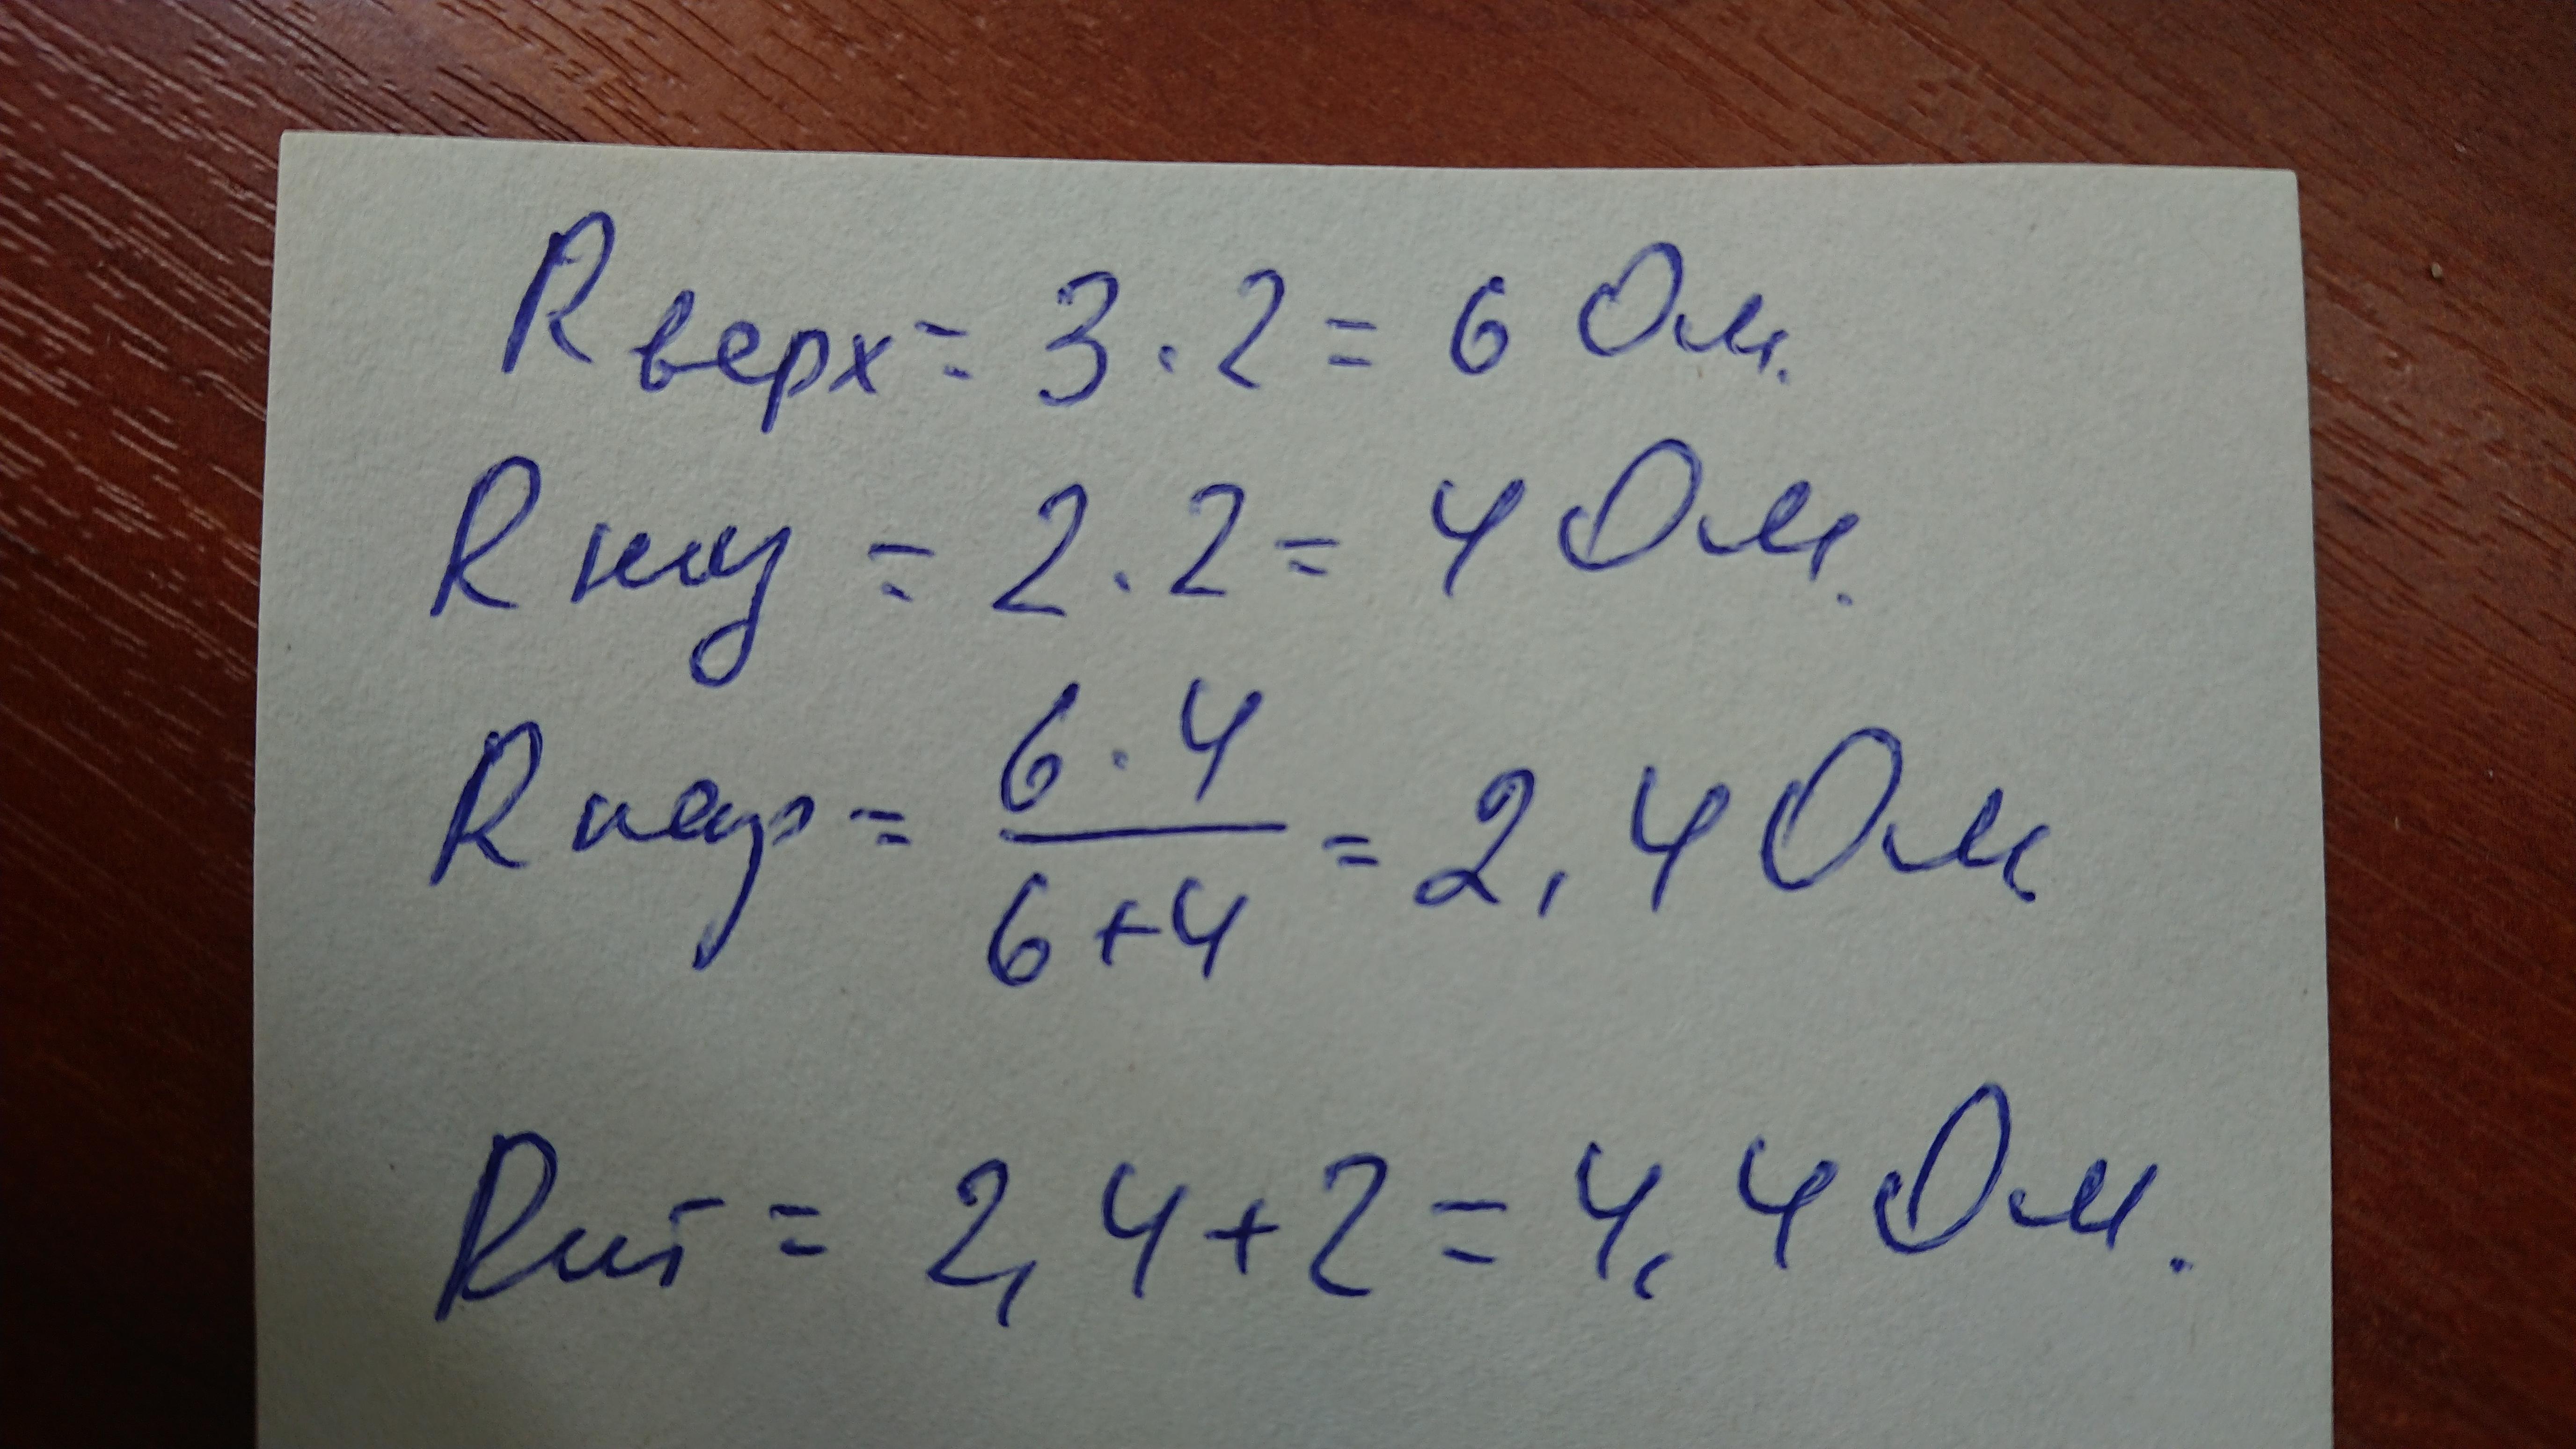 Rверх = 3 · 2 = 6 Ом.
Rниз = 2 · 2 = 4 Ом.
Rпар = 6 · 4 / 6 + 4 = 2,4 Ом
Rит = 2,4 + 2 = 4,4 Ом.